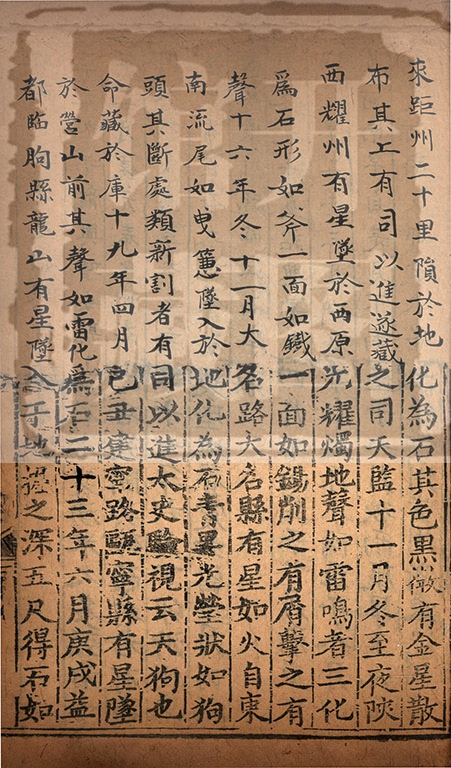 來距州二十里隕於地化為石其色黑微有金星散
布其上有司以進遂藏之司天監十一月冬至夜陝
西耀州有星墜於西原光耀燭地聲如雷鳴者三化
爲石形如斧一面如鐵一面如錫削之有屑擊之有
聲十六年冬十一月大名路大名縣有星如火自東
南流尾如曳篲墜入於地化為石青黑光瑩狀如狗
頭其斷處類新割者有司以進太史驗視云天狗也
命藏於庫十九年四月己丑建寧路甌寧縣有星墜
於營山前其聲如雷化爲石二十三年六月庚戌益
都臨朐縣龍山有星墜入于地掘之深五尺得石如